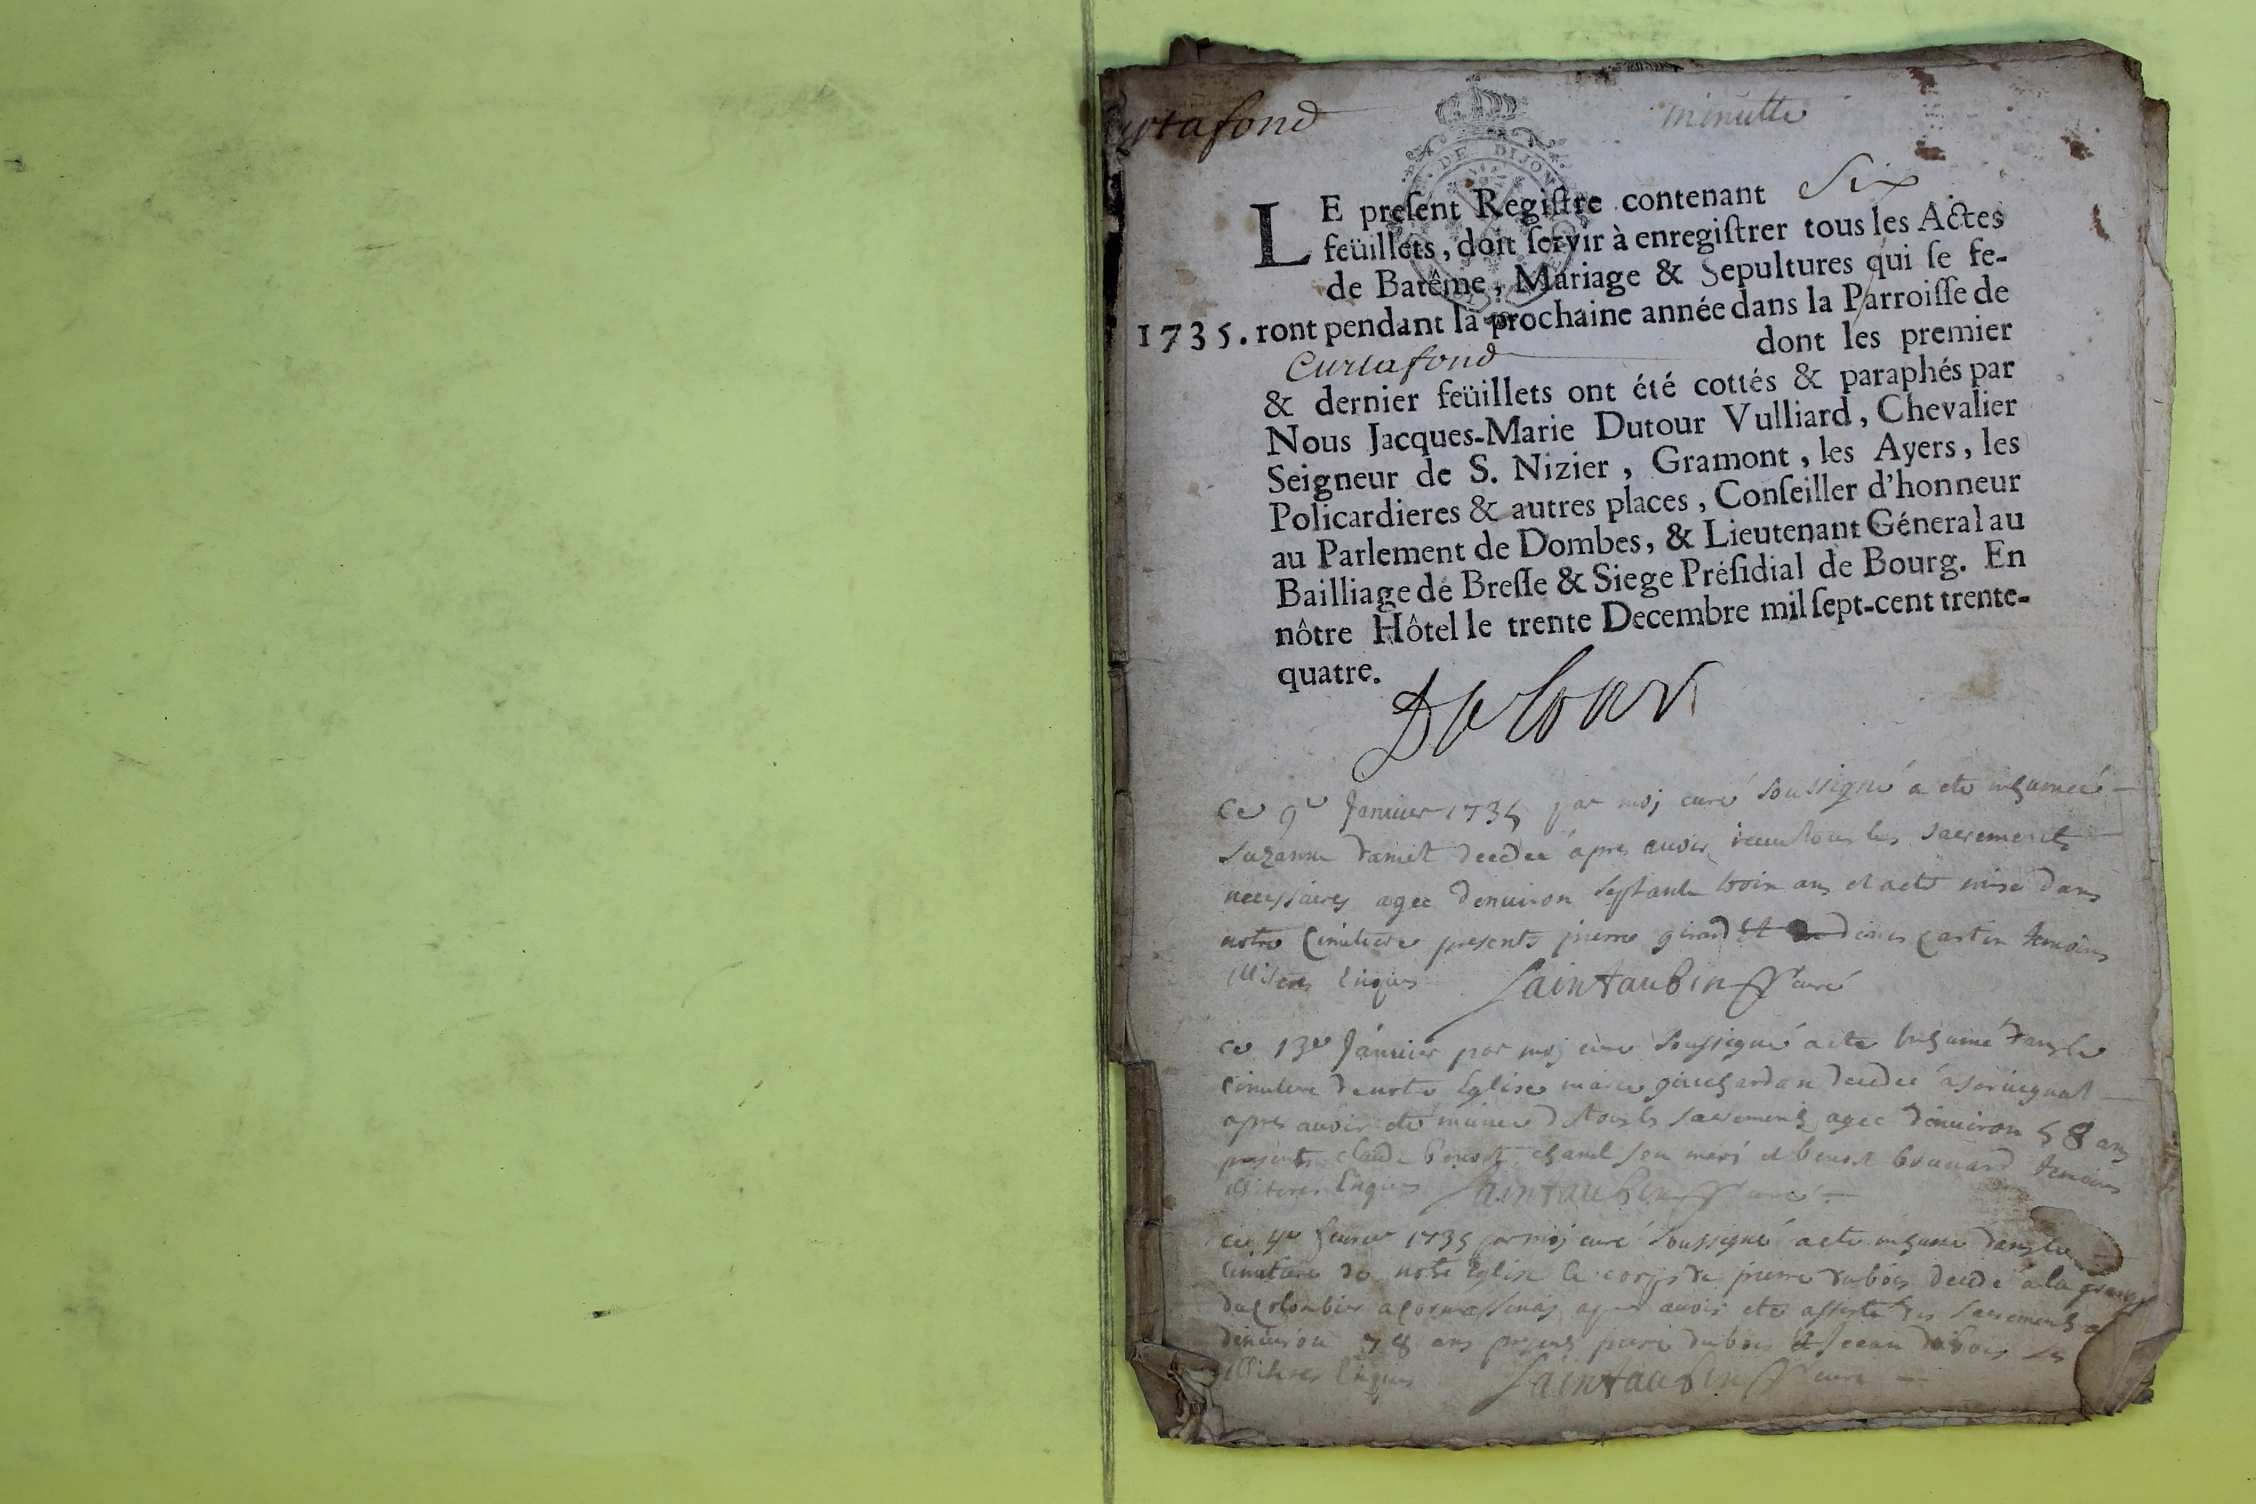 Curtafond
minutte
DE DIJON
LE preſent Regiſtre contenant Six
feüillets, doit ſervir à enregiſtrer tous les Actes
de Batême, Mariage & Sepultures qui ſe fe-
1735. ront pendant la prochaine année dans la Parroiſſe de
Curtafond dont les premier
& dernier feüillets ont été cottés & paraphés par
Nous Jacques-Marie Dutour Vulliard, Chevalier
Seigneur de S. Nizier, Gramont, les Ayers, les
Policardieres & autres places, Conſeiller d'honneur
au Parlement de Dombes, & Lieutenant Géneral au
Bailliage de Breſſe & Siege Préſidial de Bourg. En
nôtre Hôtel le trente Decembre mil ſept-cent trente-
quatre.
Dutour
Ce 9e Janvier 1735 par moj curé soussigné a ete inhumeé
Suzanne decedeé apres avoir receu tous les sacrements
necessaires agee denuiron septante trois ans et a ete mise dans
notre Cimitiere presents pierre girard et denis temoins
illiteres Enquis Saintaubin curé
ce 13e Janvier par moj cure soussigné a ete inhumé dans le
cimitiere de notre Eglise decedeé
apres avoir ete munie de tous les sacements agee denuiron 58 ans
presents claude benoit son mari et benoit temoins
illiteres Enquis Saintaubin curé
ce 4e fevrier 1735 par moj curé soussigné a ete inhume dans le
Cimitiere de notre Eglise le corps de pierre dubois decedé a la grange
du colombier apres avoir ete assisté des sacements
denuiron 78 ans presens dubois et jean dubois
illiteres Enquis Saintaubin curé